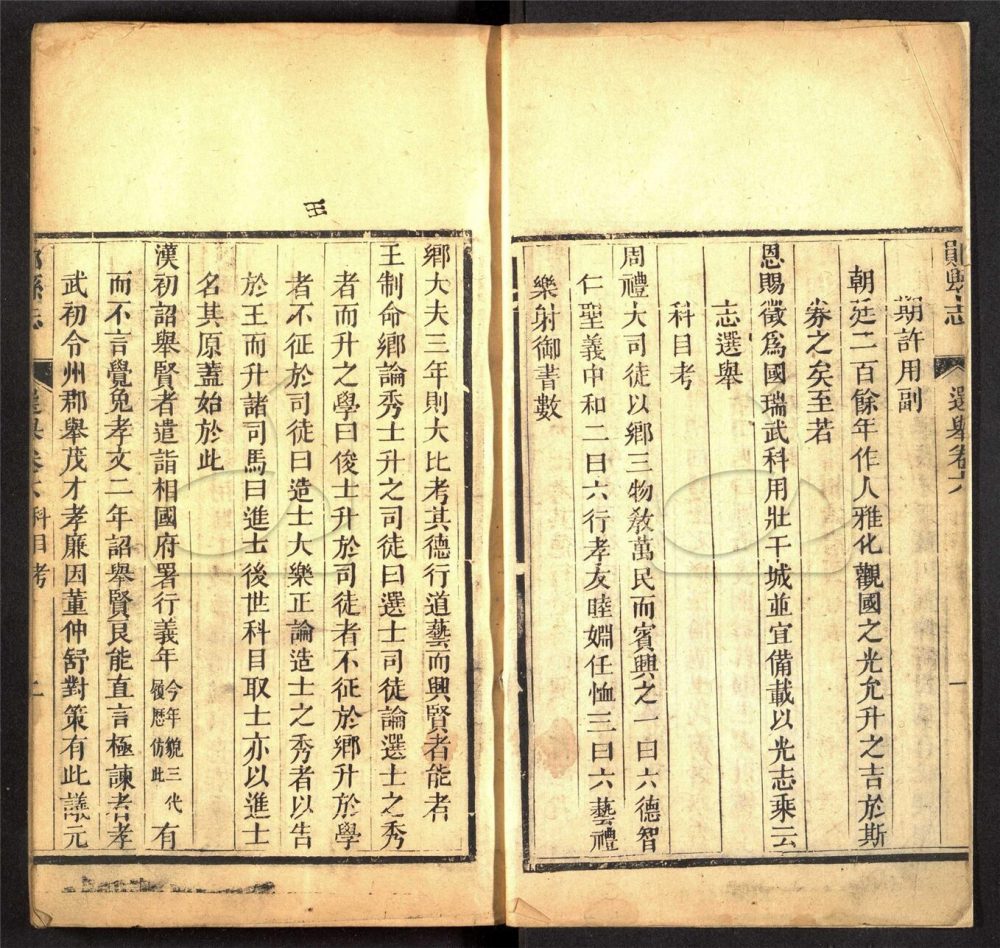 鄖縣志
選舉卷六
一
期許用副
朝廷二百餘年作人雅化觀國之光允升之吉於斯
券之矣至若
恩賜徵爲國瑞武科用壯干城並宜備載以光志乘云
志選舉
科目考
周禮大司徒以鄉三物敎萬民而賓興之一曰六德智
仁聖義中和二曰六行孝友睦婣任恤三曰六藝禮
樂射御書數
鄉大夫三年則大比考其德行道藝而興賢者能者
王制命鄉論秀士升之司徒曰選士司徒論選士之秀
者而升之學曰俊士升於司徒者不征於鄉升於學
者不征於司徒曰造士大樂正論造士之秀者以告
於王而升諸司馬曰進士後世科目取士亦以進士
名其原蓋始於此
漢初詔舉賢者遣詣相國府署行義年今年貌三代履歷仿此有
而不言覺免孝文二年詔舉賢良能直言極諫者孝
武初令州郡舉茂才孝廉因董仲舒對策有此議元
科目考